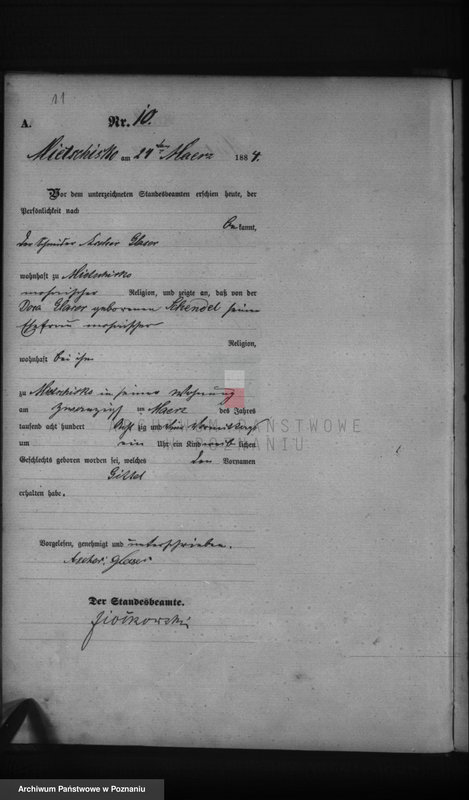 11
A.
Nr. 10.
Mietschisko am 24ten Maerz 1884.
Vor dem unterzeichneten Standesbeamten erschien heute, der
Persönlichkeit nach
bekannt,
der Schneider Ascher Glaser
wohnhaft zu Mietschisko
mosaischer Religion, und zeigte an, daß von der
Dora Glaser geborenen seiner
Ehefrau mosaischer
Religion,
wohnhaft bei ihm
zu Mietschisko in seiner Wohnung
am ten Maerz des Jahres
tausend acht hundert achtzig und Vormittags
um ein Uhr ein Kind weiblichen
Geschlechts geboren worden sei, welches den Vornamen
Gittel
erhalten habe.
Vorgelesen, genehmigt und unterschrieben.
Ascher Glaser
Der Standesbeamte.
Ziółkowski
PAŃSTWOWE
POZNANIU
Archiwum Państwowe w Poznaniu